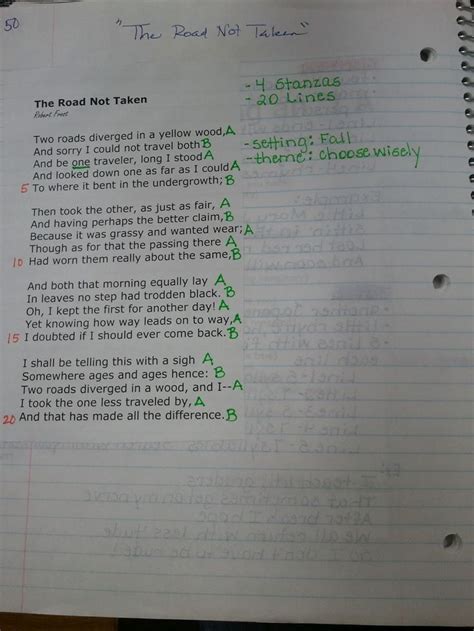 50
"The Road Not Taken"
- 4 Stanzas
- 20 Lines
The Road Not Taken
Robert Frost
- setting: Fall
- theme: choose wisely
Two roads diverged in a yellow wood, A
And sorry I could not travel both B
And be one traveler, long I stood A
And looked down one as far as I could A
5 To where it bent in the undergrowth; B
Then took the other, as just as fair, A
And having perhaps the better claim, B
Because it was grassy and wanted wear; A
Though as for that the passing there A
10 Had worn them really about the same, B
And both that morning equally lay A
In leaves no step had trodden black. B
Oh, I kept the first for another day! A
Yet knowing how way leads on to way, A
15 I doubted if I should ever come back. B
I shall be telling this with a sigh A
Somewhere ages and ages hence: B
Two roads diverged in a wood, and I-- A
I took the one less traveled by, A
20 And that has made all the difference. B